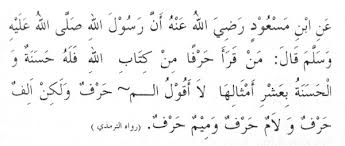 عَنِ ابْنِ مَسْعُوْدٍ رَضِيَ اللهُ عَنْهُ أَنَّ رَسُوْلَ اللهِ صَلَّى اللهُ عَلَيْهِ
وَسَلَّمَ قَالَ: مَنْ قَرَأَ حَرْفًا مِنْ كِتَابِ اللهِ فَلَهُ حَسَنَةٌ وَ
الْحَسَنَةُ بِعَشْرِ أَمْثَالِهَا لَا أَقُوْلُ الــم~ حَرْفٌ وَلَكِنْ اَلِفٌ
حَرْفٌ وَ لَامٌ حَرْفٌ وَمِيْمٌ حَرْفٌ. (رواه الترمذي)